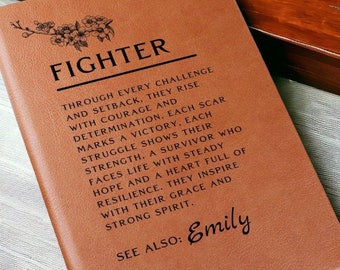 FIGHTER
THROUGH EVERY CHALLENGE
AND SETBACK, THEY RISE
WITH COURAGE AND
DETERMINATION. EACH SCAR
MARKS A VICTORY, EACH
STRUGGLE SHOWS THEIR
STRENGTH. A SURVIVOR WHO
FACES LIFE WITH STEADY
HOPE AND A HEART FULL OF
RESILIENCE. THEY INSPIRE
WITH THEIR GRACE AND
STRONG SPIRIT.
SEE ALSO: Emily